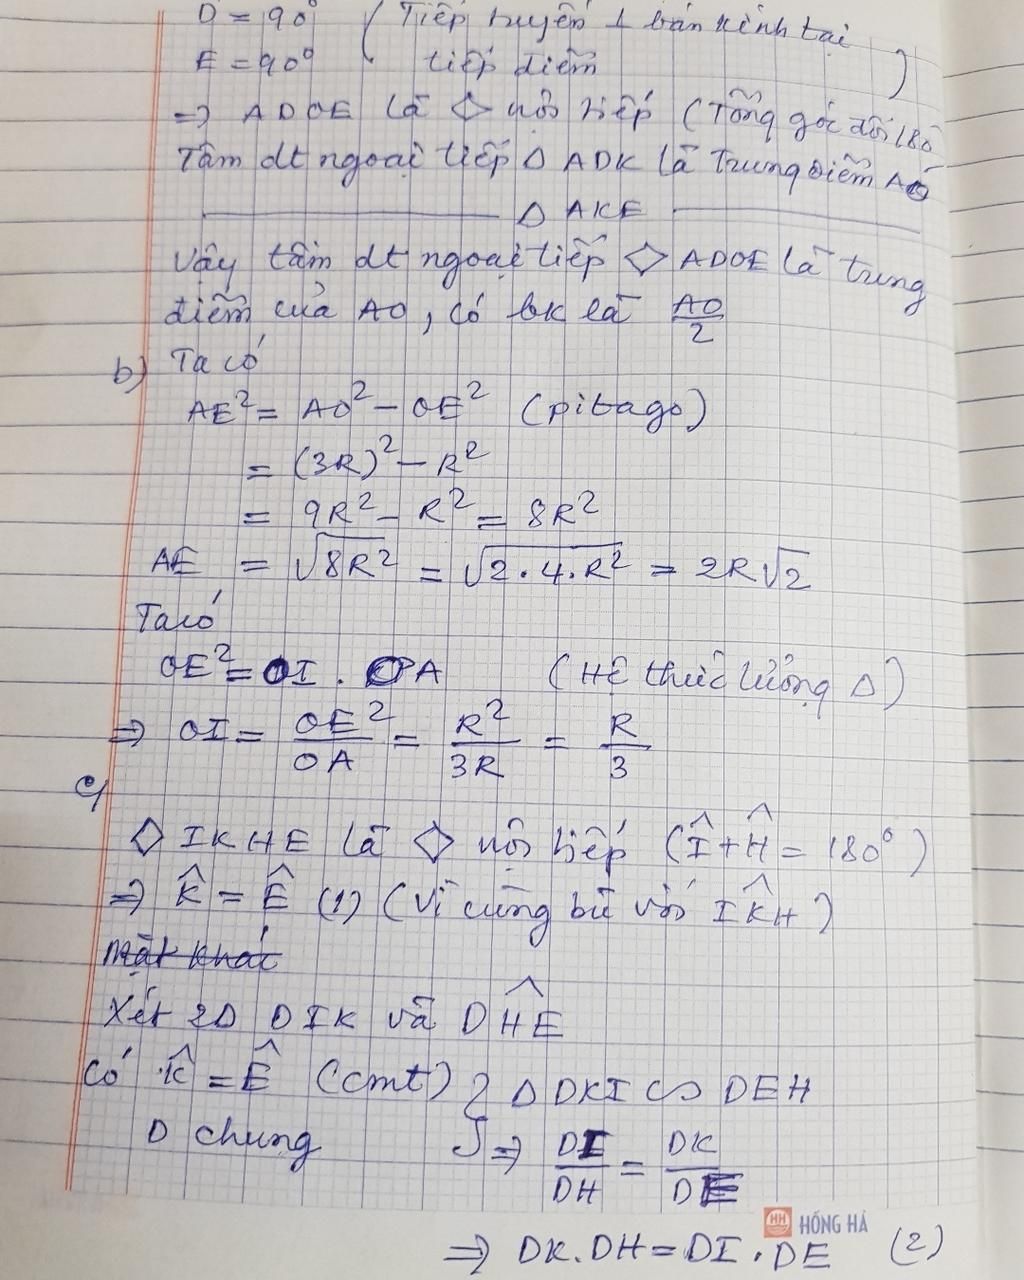 D = 90° (Tiếp tuyến ⊥ bán kính tại
E = 90° tiếp điểm)
=> ADOE là ◇ nội tiếp (Tổng góc đối 180
Tâm dt ngoại tiếp Δ ADK là Trung điểm AO
——— Δ AKE ———
Vậy tâm dt ngoại tiếp ◇ ADOE là trung
điểm của AO, có bk là AO/2
b) Ta có
AE² = AO² - OE² (pitago)
= (3R)² - R²
= 9R² - R² = 8R²
AE = √8R² = √2.4.R² = 2R√2
Ta có
OE² = OI . OA (Hệ thức lượng Δ)
=> OI = OE²/OA = R²/3R = R/3
c)
◇ IKHE là ◇ nội tiếp (Î + Ĥ = 180°)
=> K̂ = Ê (1) (Vì cùng bù với IK̂H)
Mặt khác
Xét 2Δ DIK và DĤE
Có K̂ = Ê (cmt) } Δ DKI ∽ DEH
D chung => DI/DH = DK/DE
=> DK.DH = DI.DE (2)
HH HỒNG HÀ